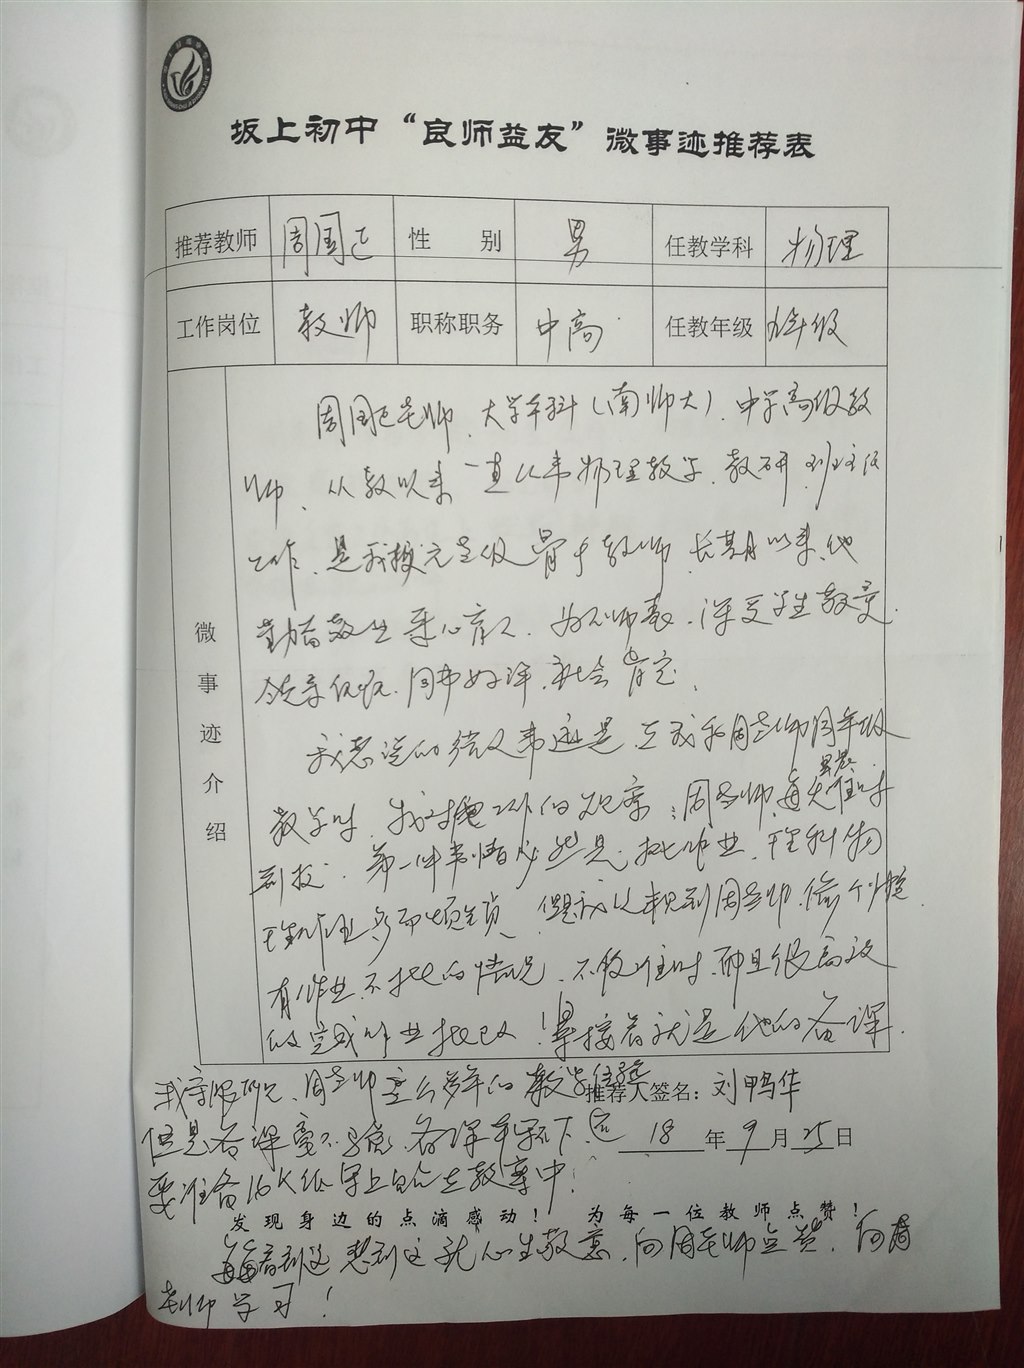 坂上初中“良师益友”微事迹推荐表
推荐教师 周国正 性别 男 任教学科 物理
工作岗位 教师 职称职务 中高 任教年级 九年级
微事迹介绍
周国正老师、大学本科(南师大)、中学高级教
师、从教以来一直从事物理教学、教研、班主任
工作、是我校元老级骨干教师、长期以来、他
勤奋敬业 爱心育人、为人师表、深受学生敬爱、
领导 同事好评、社会肯定、
我想说的 事迹是在我和周老师同年级
教学时、我对 的观察:周老师每天早晨准时
到校、第一件事情必然是批作业、理科物
理作业多而烦琐、但我从未见到周老师
有作业不批的情况、不仅准时、而且很高效
的完成作业批改!紧接着就是他的备课、
我亲眼所见、周老师这么多年的教学经验
推荐人签名:刘鸭华
但是备课毫不 备课本写不下、还
18年9月25日
要准备16K纸写上 在教案中!
发现身边的点滴感动! 为每一位教师点赞!
每每看到这 想到这就心生敬意、向周老师点赞、向周
老师学习!